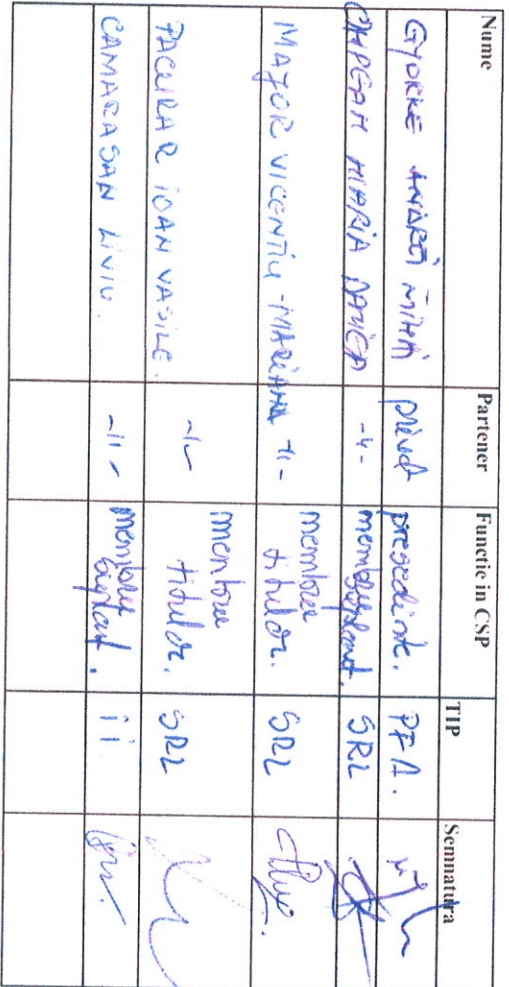 Nume Partener Functie in CSP TIP Semnatura
GYORKE ANDREI MIHAI privat presedinte. PFA.
MARIA -"- membru supleant. SRL
MAJOR VICENTIU-MARIANA -"- membru titular. SRL
PACURAR IOAN VASILE. -"- membru titular. SRL
CAMARASAN LIVIU. -"- membru supleant. II